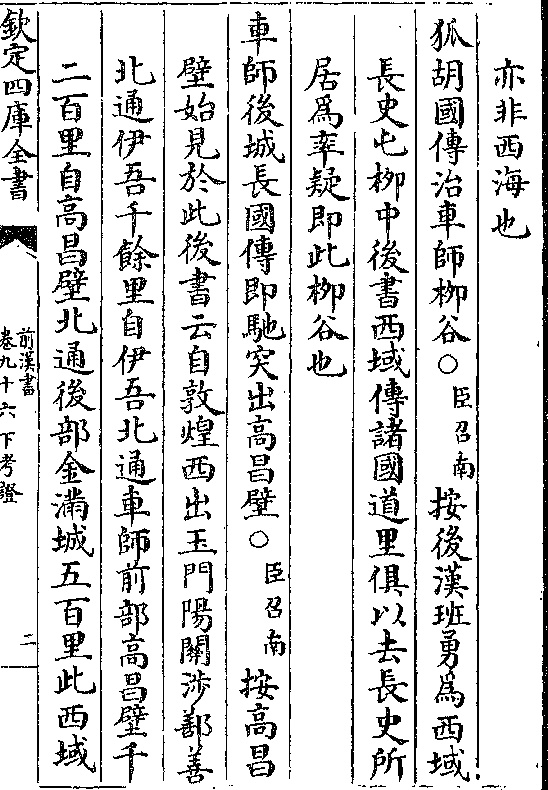 亦非西海也
狐胡國傳治車師柳谷○臣召南按後漢班勇為西域
長史屯柳中後書西域傳諸國道里俱以去長史所
居為率疑即此柳谷也
車師後城長國傳即馳突出高昌壁○臣召南按高昌
壁始見於此後書云自敦煌西出玉門陽關涉鄯善
北通伊吾千餘里自伊吾北通車師前部高昌壁千
二百里自高昌壁北通後部金滿城五百里此西域
欽定四庫全書
前漢書
卷九十六下考證
二